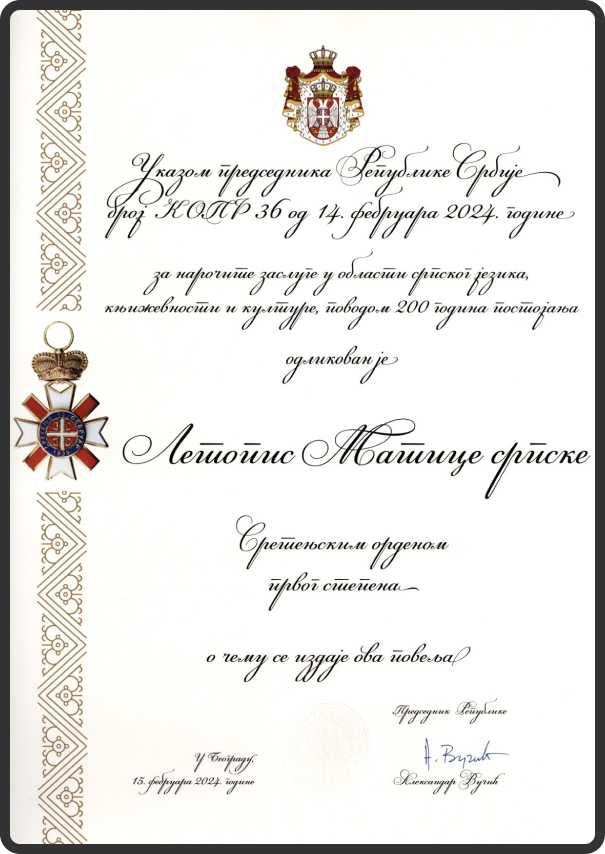 Указом председника Републике Србије
број КО.ПР 36 од 14. фебруара 2024. године
за нарочите заслуге у области српског језика,
књижевности и културе, поводом 200 година постојања
одликован је
Летопис Матице српске
Сретењским орденом
првог степена
о чему се издаје ова повеља
Председник Републике
У Београду,
15. фебруара 2024. године
А. Вучић
Александар Вучић